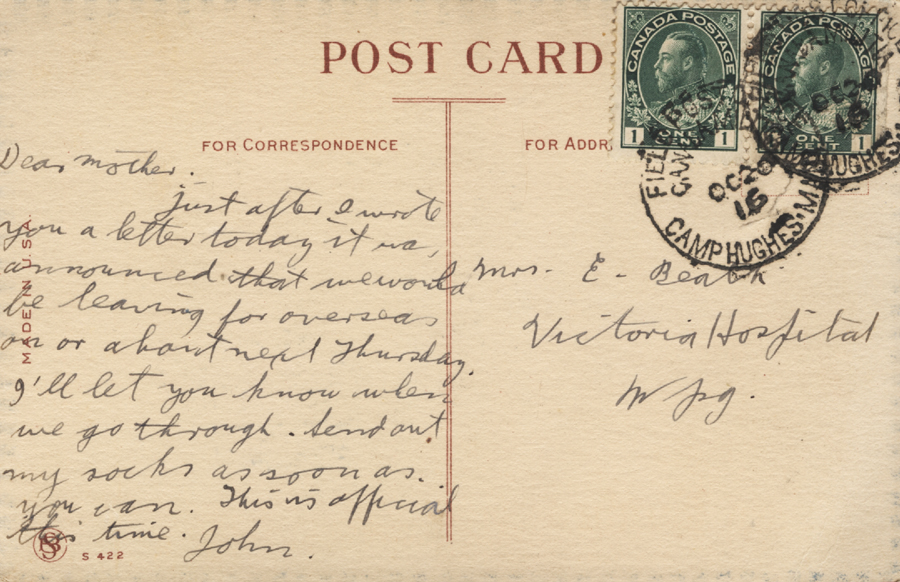 POST CARD
FOR CORRESPONDENCE
FOR ADDR
CANADA POSTAGE
1 ONE 1
CANADA POSTAGE
ONE CENT 1
FIELD POST
CAN
OC 20
16
CAMP HUGHES·MA
OC 20
16
CAMP HUGHES·
Dear Mother.
Just after I wrote
you a letter today it wa,
announced that we would
be leaving for overseas
on or about next Thursday.
I'll let you know when
we go through. Send out
my socks as soon as
you can. This is official
this time. John.
Mrs. E.
Victoria Hospital
Wpg.
MADE IN U.S.A.
S 422